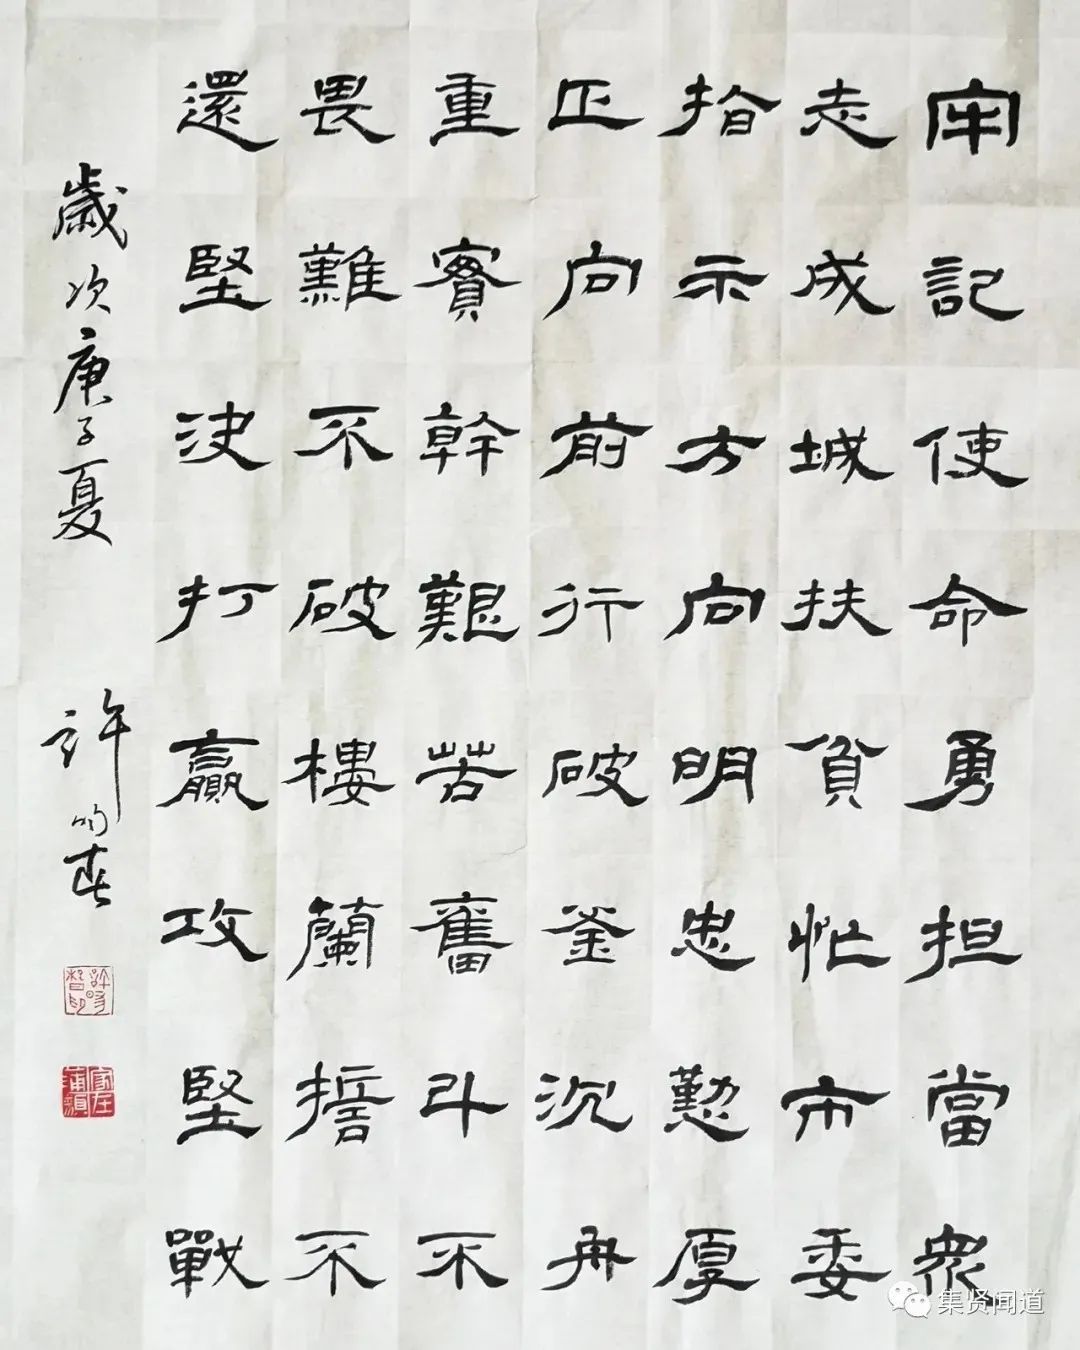 牢記使命勇担當衆
志成城扶貧忙市委
指示方向明忠懃厚
正向前行破釜沉舟
重實幹艱苦奮斗不
畏難不破樓蘭誓不
還堅決打贏攻堅戰
歲次庚子夏 許
集贤闻道